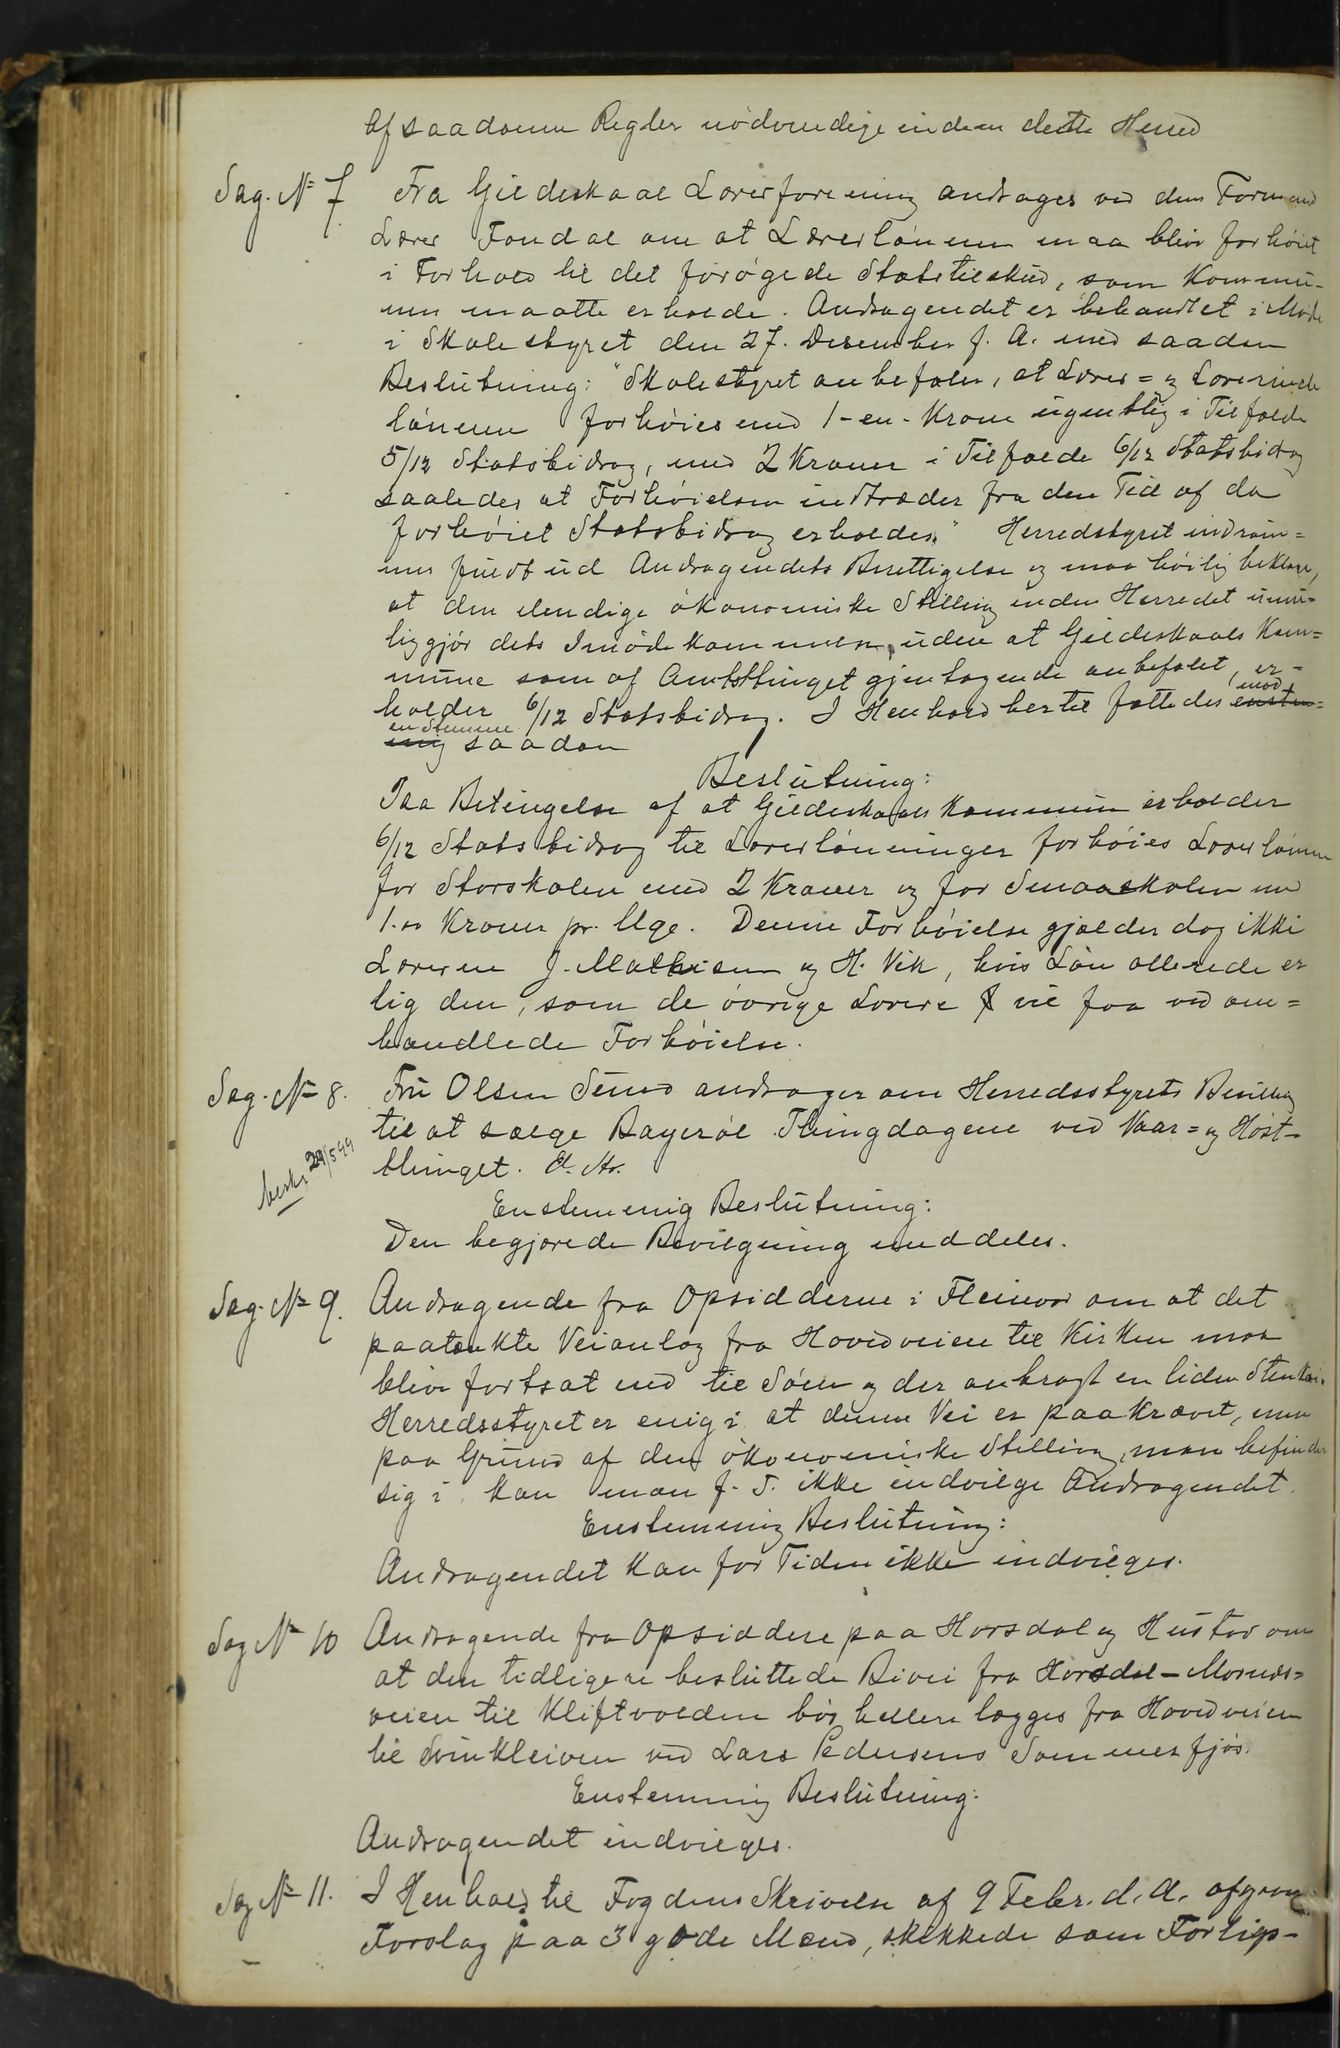 af saadanne Regler nødvendige inden dette Herred
Sag. № 7. Fra Gildeskaal Lærerforening andrages ved dens Formand
Lærer Fondal om at Lærerlønnen maa blive forhøiet
i Forhold til det forøgede Statstilskud, som Kommu-
nen maatte erholde. Andragendet er behandlet i Møde
i Skolestyret den 27. Desember f. A. med saadan
Beslutning: "Skolestyret anbefaler, at Lærer= og Lærerinde
lønnen forhøies med 1-en-Krone ugentlig i Tilfælde
5/12 Statsbidrag, med 2 Kroner i Tilfælde 6/12 Statsbidrag
saaledes at Forhøielsen indtræder fra den Tid af da
forhøiet Statsbidrag erholdes." Herredstyret indrøm=
mer fuldt ud Andragendets Berettigelse og maa høilig beklage,
at den elendige økonomiske Stilling inden Herredet umu-
liggjør dets Imødekommen, uden at Gildeskaals Kom=
mune som af Amtsthinget gjentagende anbefalet, er-
holder 6/12 Statsbidrag. I Henhold hertil fattedes mod enstem=
en Stemme mig saadan
Beslutning:
Paa Betingelse af at Gildeskaals Kommune erholder
6/12 Statsbidrag til Lærerlønninger forhøies Lærerlønnen
for Storskolen med 2 Kroner og for Smaaskolen med
1.00 Kroner pr. Uge. Denne Forhøielse gjælder dog ikke
Lærerne J. Mathisen og H. Vik, hvis Løn allerede er
lig den, som de øvrige Lærere vil faa ved om=
handlede Forhøielse.
Sag. № 8. Fru Olsen Sund andrager om Herredsstyrets Bevilling
til at sælge Bayerøl Thingdagene ved Vaar= og Høst-
thinget.
besk. 29/5 99
Enstemmig Beslutning:
Den begjærede Bevilgning meddeles.
Sag. № 9. Andragende fra Opsidderne i Fleinvær om at det
paatænkte Veianlæg fra Hovedveien til Kirken maa
blive fortsat ned til Søen og der anbragt en liden Stenkai.
Herredsstyret er enig i at denne Vei er paakrævet, men
paa Grund af den økonomiske Stilling, man befinder
sig i, kan man f. T. ikke indvilge Andragendet.
Enstemmig Beslutning:
Andragendet kan for Tiden ikke indvilges.
Sag № 10 Andragende fra Opsiddere paa Horsdal og Hustad om
at den tidligere besluttede Bivei fra Horsdal-Mornes=
veien til Kliftvolden bør hellere lægges fra Hovedveien
til Svinkleiven ved Lars Pedersens Sommerfjøs.
Enstemmig Beslutning:
Andragendet indvilges.
Sag № 11. I Henhold til Fogdens Skrivelse af 9 Febr. d. A. afgives
Forslag paa 3 gode Mænd, skikkede som Forligs-